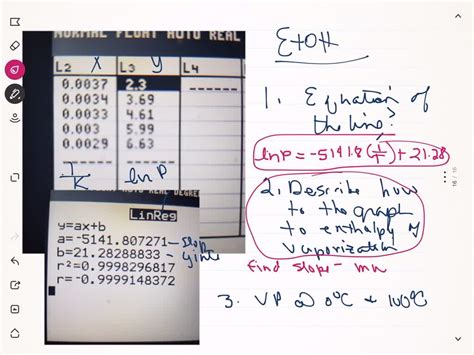 NORMAL FLOAT AUTO REAL
L2 X L3 y L4
0.0037 2.3 ------
0.0034 3.69
0.0033 4.61
0.003 5.99
0.0029 6.63
1/K ln P
LinReg
y=ax+b
a=-5141.807271 - slope
b=21.28288833 - yint
r²=0.9998296817
r=-0.9999148372
EtOH
1. Equation of
the line?
ln P = -5141.8 (1/T) + 21.28
2. Describe how
to the graph
to enthalpy of
vaporization
Find slope -
3. VP @ 0°C + 100°C